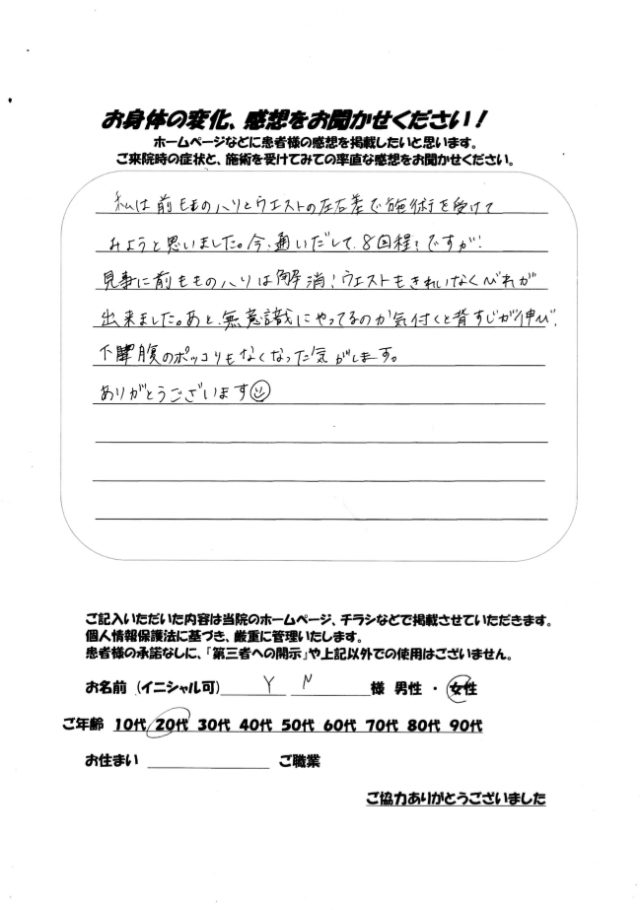 お身体の変化、感想をお聞かせください！
ホームページなどに患者様の感想を掲載したいと思います。
ご来院時の症状と、施術を受けてみての率直な感想をお聞かせください。
私は前もものハリとウエストの左右差で施術を受けて
みようと思いました。今、通いだして、8回程?ですが!
見事に前もものハリは解消!ウエストもきれいなくびれが
出来ました。あと、無意識にやってるのか気付くと背すじが伸び、
下腹のポッコリもなくなった気がします。
ありがとうございます☺
ご記入いただいた内容は当院のホームページ、チラシなどで掲載させていただきます。
個人情報保護法に基づき、厳重に管理いたします。
患者様の承諾なしに、「第三者への開示」や上記以外での使用はございません。
お名前（イニシャル可） Y N 様 男性 ・ 女性
ご年齢 10代 20代 30代 40代 50代 60代 70代 80代 90代
お住まい ご職業
ご協力ありがとうございました